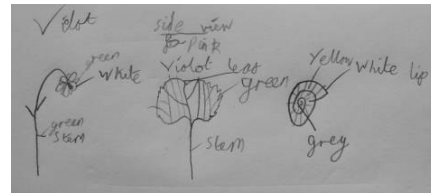 Violot
side view
Pink
green
white
green
stem
violot leaf
green
stem
Yellow
white lip
grey